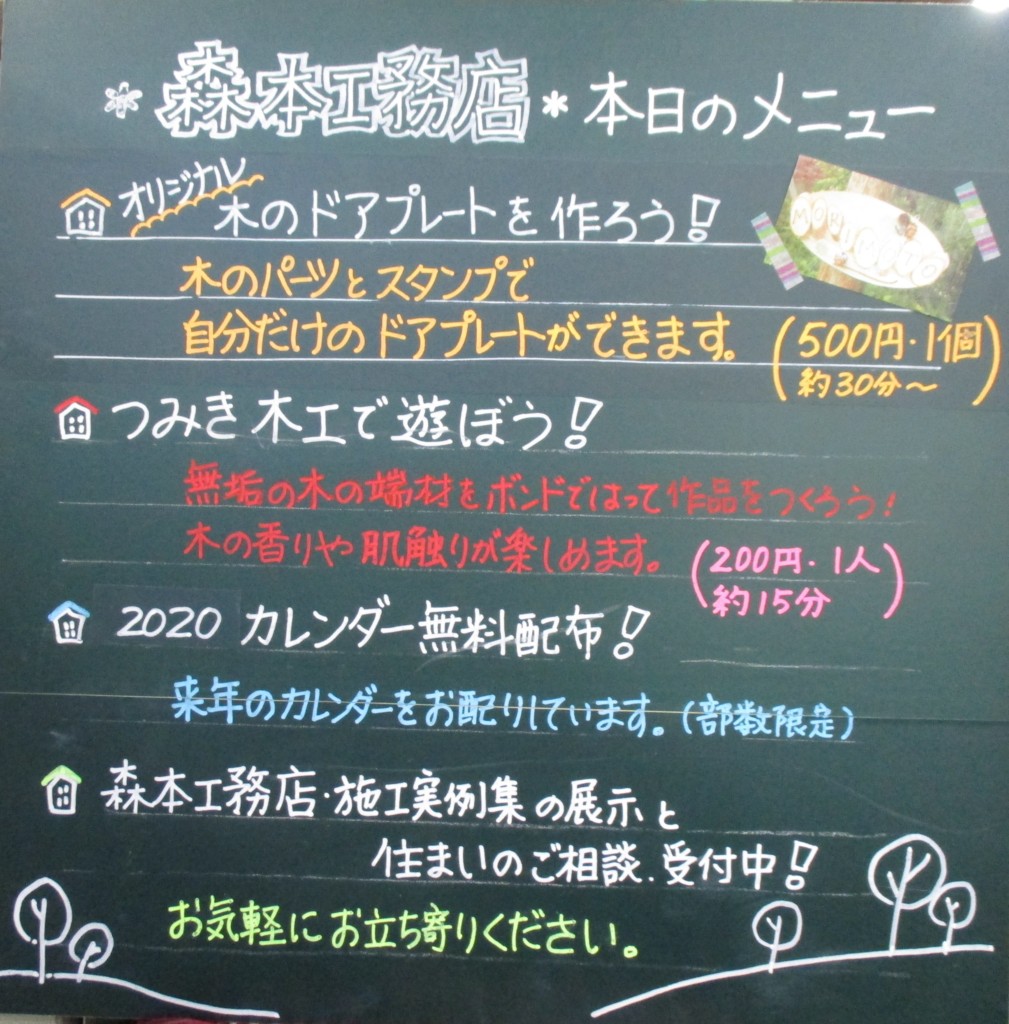 ＊森本工務店＊本日のメニュー
オリジナル木のドアプレートを作ろう!
MORIMOTO
木のパーツとスタンプで
自分だけのドアプレートができます。(500円・1個
約30分～)
つみき木工で遊ぼう!
無垢の木の端材をボンドではって作品をつくろう!
木の香りや肌触りが楽しめます。(200円・1人
約15分)
2020 カレンダー無料配布!
来年のカレンダーをお配りしています。(部数限定)
森本工務店・施工実例集の展示と
住まいのご相談、受付中!
お気軽にお立ち寄りください。